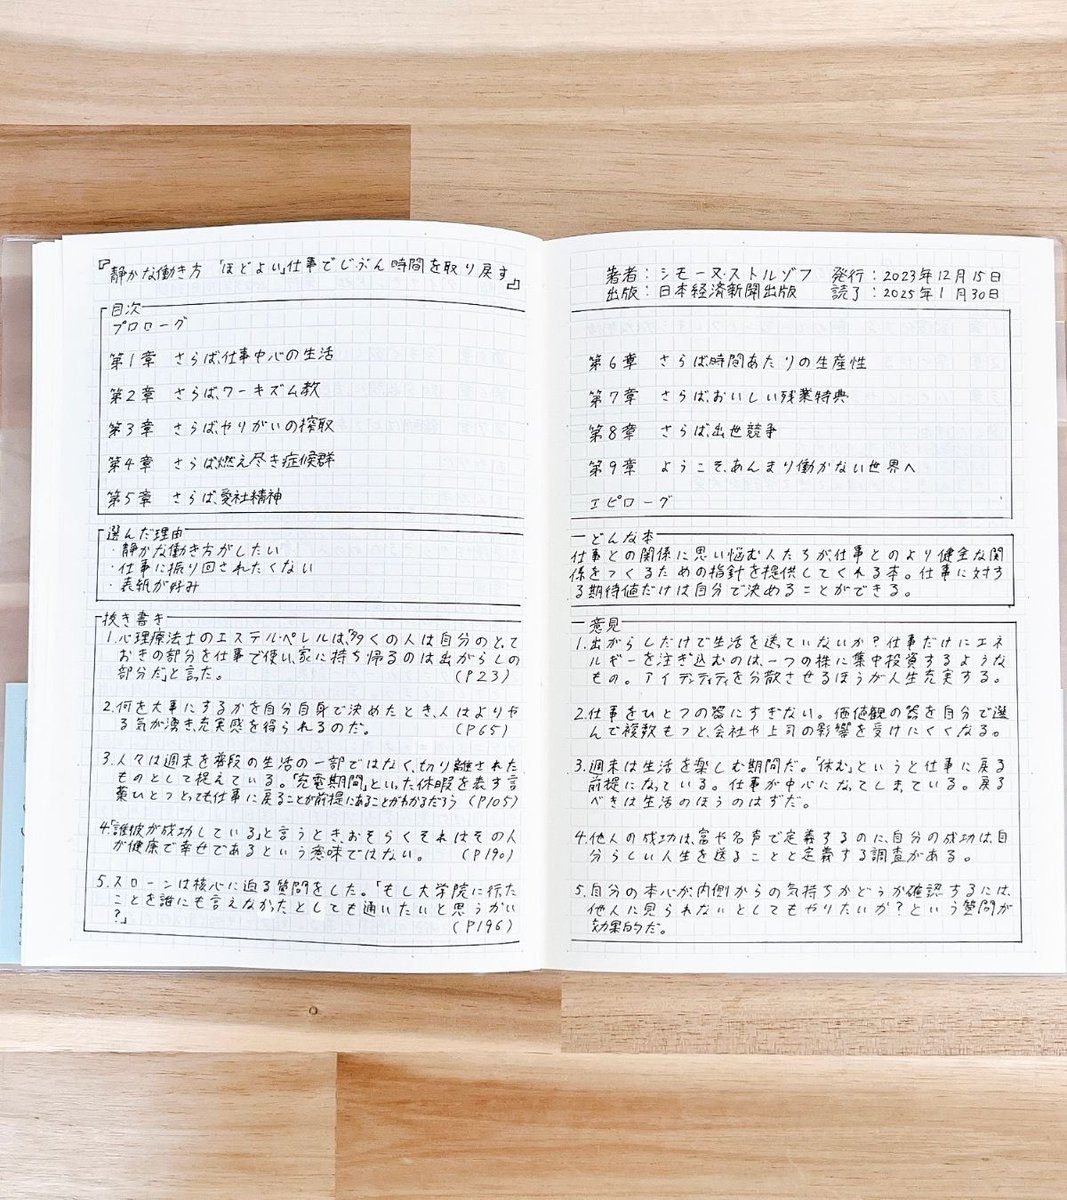 『静かな働き方 「ほどよい」仕事でじぶん時間を取り戻す』
目次
プロローグ
第1章 さらば、仕事中心の生活
第2章 さらば、ワーキズム教
第3章 さらば、やりがいの搾取
第4章 さらば燃え尽き症候群
第5章 さらば、愛社精神
選んだ理由
・静かな働き方がしたい
・仕事に振り回されたくない
・表紙が好み
抜き書き
1.心理療法士のエステル・ペレルは、「多くの人は自分のとって
おきの部分を仕事で使い、家に持ち帰るのは出がらしの
部分だ」と言った。 (P23)
2.何を大事にするかを自分自身で決めたとき、人はよりや
る気が湧き、充実感を得られるのだ。 (P65)
3.人々は週末を普段の生活の一部ではなく、切り離された
ものとして捉えている。「充電期間」といった休暇を表す言
葉ひとつとっても仕事に戻ることが前提にあることがわかるだろう (P105)
4.「誰彼が成功している」と言うとき、おそらくそれはその人
が健康で幸せであるという意味ではない。 (P190)
5.スローンは核心に迫る質問をした。「もし大学院に行った
ことを誰にも言えなかったとしても通いたいと思うかい
?」 (P196)
著者：シモーヌ・ストルゾフ 発行：2023年12月15日
出版：日本経済新聞出版 読了：2025年1月30日
第6章 さらば、時間あたりの生産性
第7章 さらば、おいしい残業特典
第8章 さらば、出世競争
第9章 ようこそ、あんまり働かない世界へ
エピローグ
どんな本
仕事との関係に思い悩む人たちが仕事とのより健全な関
係をつくるための指針を提供してくれる本。仕事に対す
る期待値だけは自分で決めることができる。
意見
1.出がらしだけで生活を送っていないか?仕事だけにエネ
ルギーを注ぎ込むのは、一つの株に集中投資するような
もの。アイデンティティを分散させるほうが人生充実する。
2.仕事をひとつの器にすぎない。価値観の器を自分で選
んで複数もつと、会社や上司の影響を受けにくくなる。
3.週末は生活を楽しむ期間だ。「休む」というと仕事に戻る
前提になっている。仕事が中心になってしまっている。戻る
べきは生活のほうのはずだ。
4.他人の成功は、富や名声で定義するのに、自分の成功は、自
分らしい人生を送ることと定義する調査がある。
5.自分の本心が、内側からの気持ちかどうか確認するには、
他人に見られないとしてもやりたいか?という質問が
効果的だ。